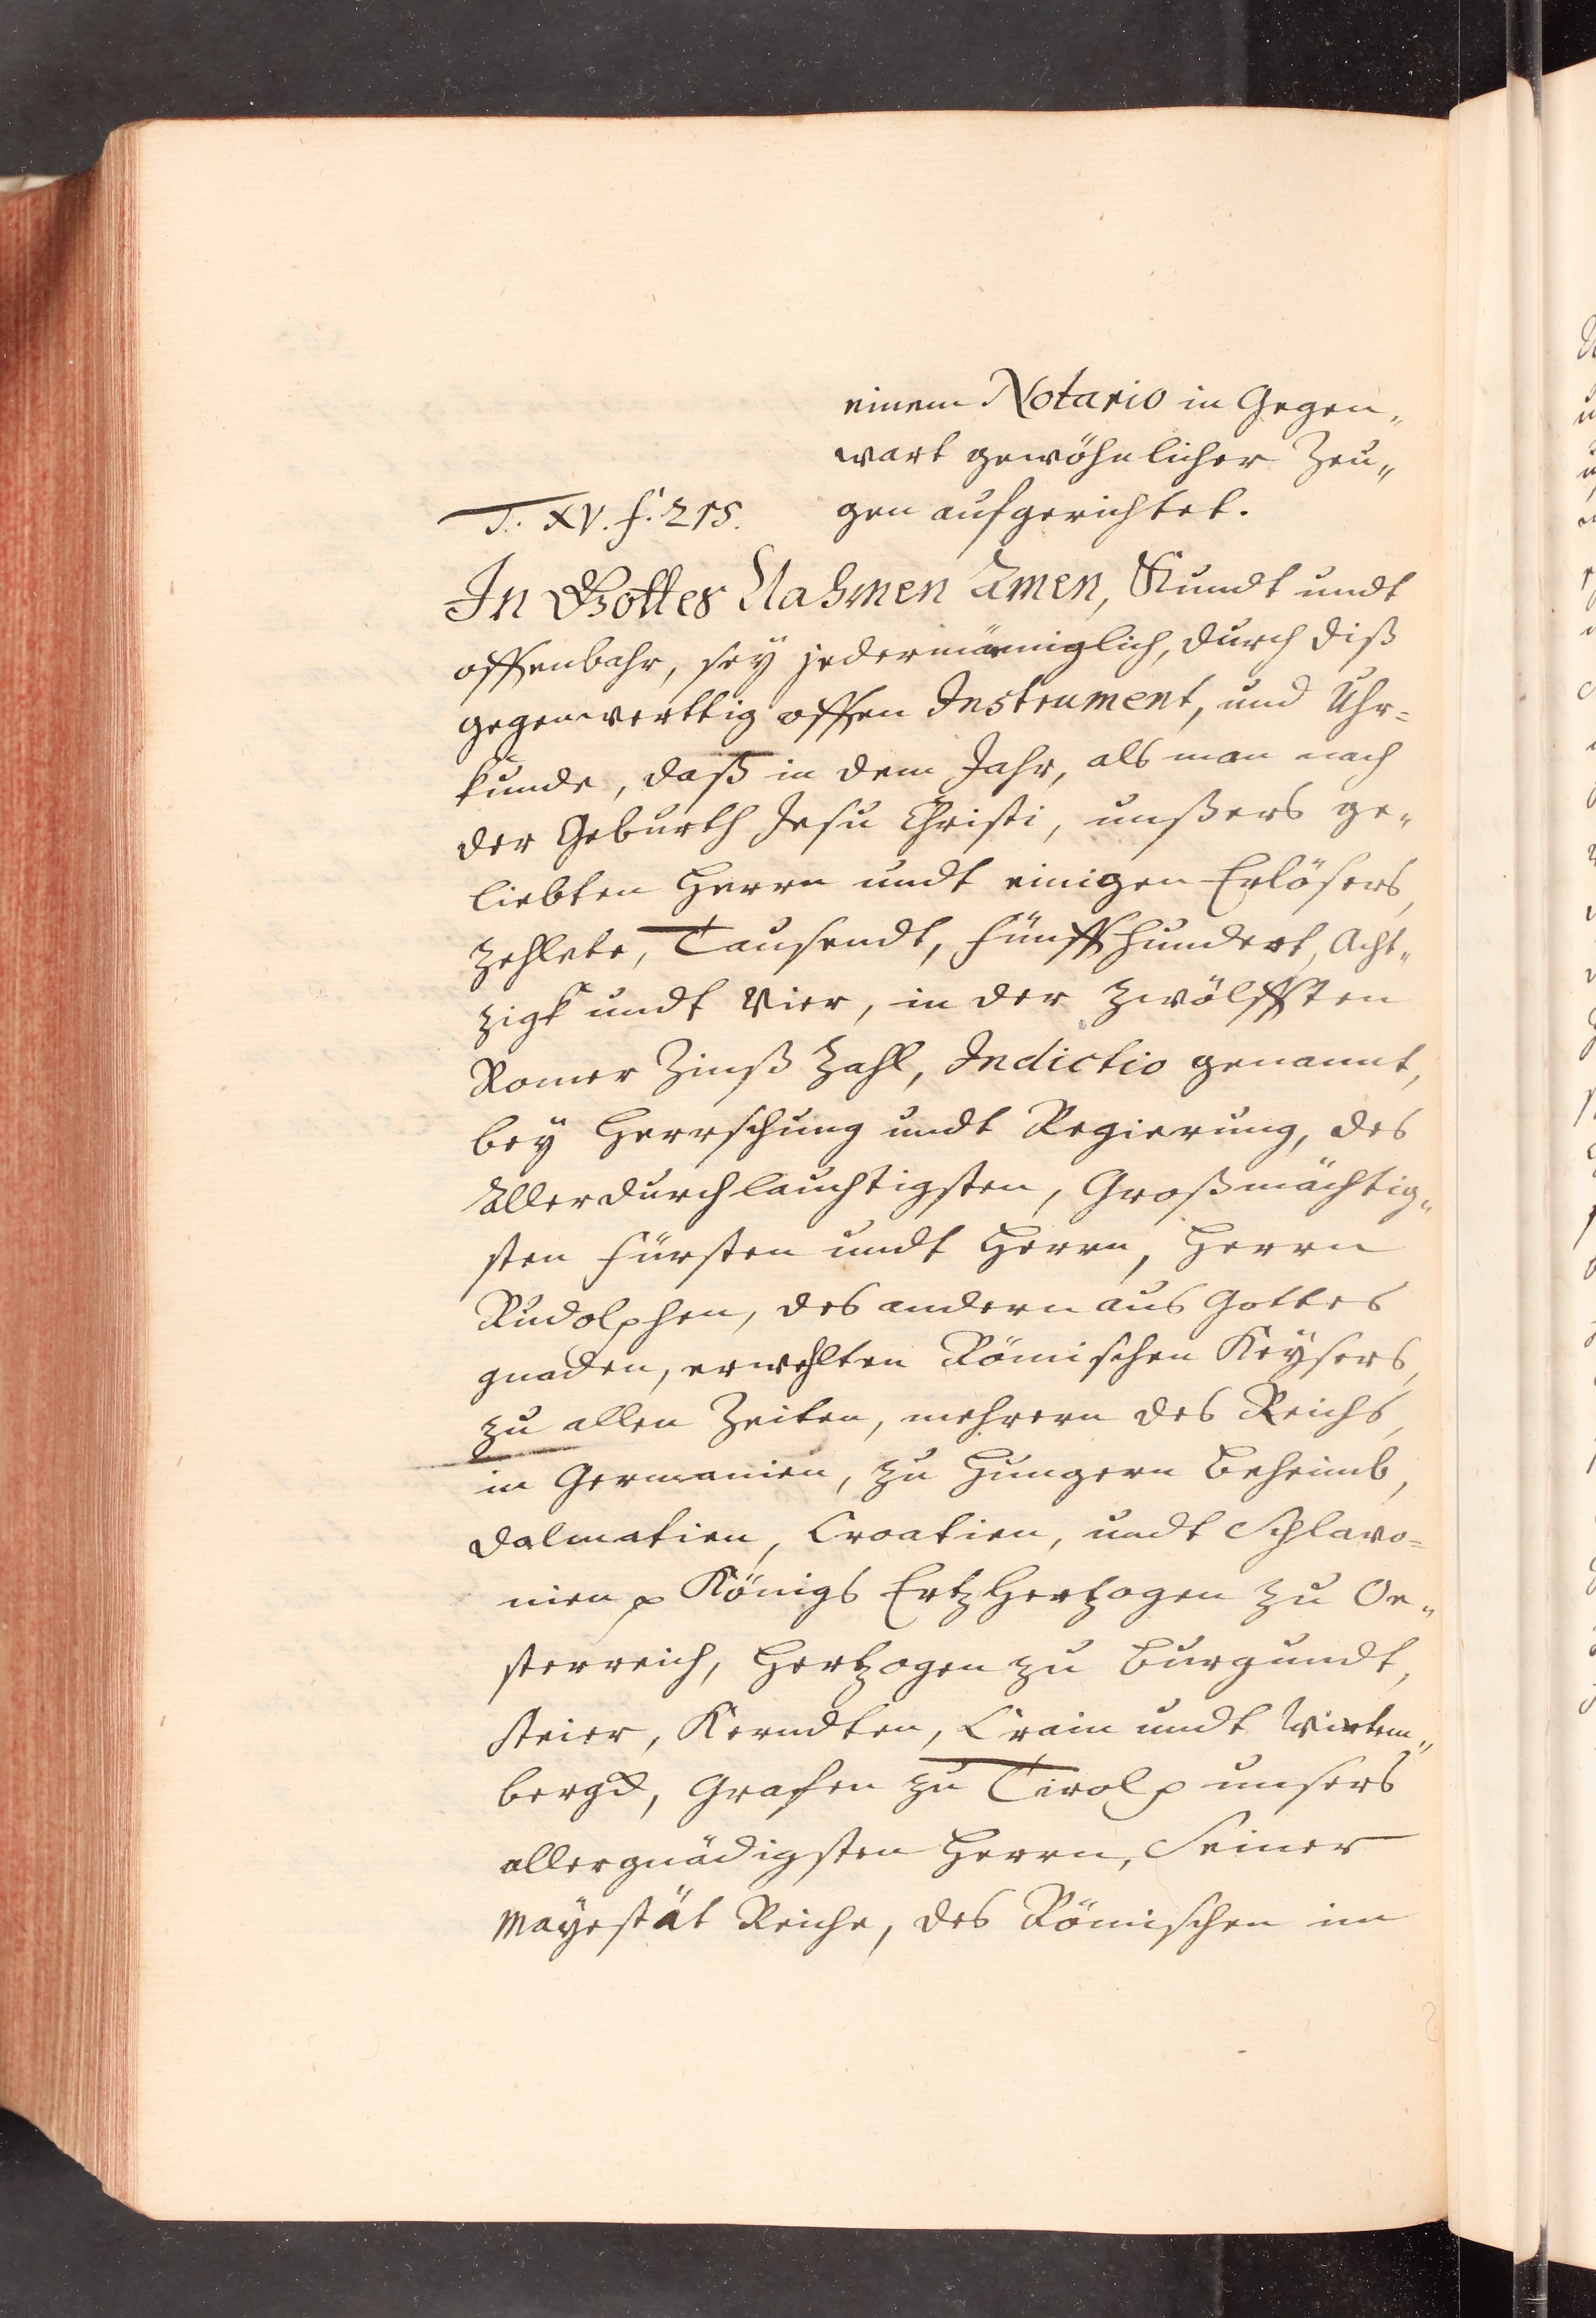 einem Notario in Gegen„
wart gewöhnlicher Zeu„
gen aufgerichtet.
T. XV. f. 215.
In Gottes Nahmen Amen, Kundt undt
offenbahr, sey jedermänniglich, durch diß
gegenwerttig offen Instrument, und Uhr=
kunde, daß in dem Jahr, als man nach
der Geburth Jesu Christi, unßers ge„
liebten Herrn undt einigen Erlösers,
zehlete, Tausendt, fünffhundert, Acht„
zigk undt Vier, in der zwölfften
Romer Zinß Zahl, Indictio genannt,
bey Herrschung undt Regierung, des
Allerdurchlauchtigsten, Großmächtig„
sten fürsten undt Herrn, Herrn
Rudolphen, des andern aus Gottes
gnaden, erwehlten Römischen Keysers,
zu allen Zeiten, mehrern des Reichs,
in Germanien, zu Hungern Beheimb,
Dalmatien, Croatien, undt Schlavo=
nien p Königs Ertzhertzogen zu Oe„
sterreich, Hertzogen zu Burgundt,
Steier, Kerndten, Crain undt Wirtem„
bergk, Grafen zu Tirol p unsers
allergnädigsten Herrn, Seiner
Mayestät Reiche, des Römischen im